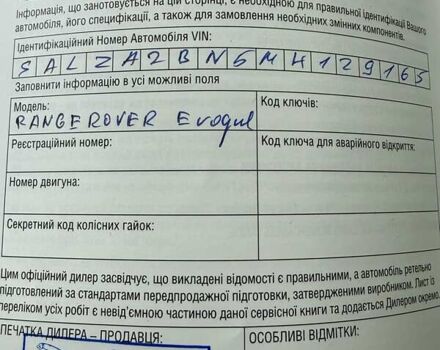 Інформація, що занотовується на цій сторінці, є необхідною для правильної ідентифікації Вашого
автомобіля, його специфікації, а також для замовлення необхідних змінних компонентів.
Ідентифікаційний Номер Автомобіля VIN:
SALZA2BN5MH129165
Заповнити інформацію в усі можливі поля
Модель:
RANGE ROVER Evoque
Код ключів:
Реєстраційний номер:
Код ключа для аварійного відкриття:
Номер двигуна:
Секретний код колісних гайок:
Цим офіційний дилер засвідчує, що викладені відомості є правильними, а автомобіль ретельно
підготовлений за стандартами передпродажної підготовки, затвердженими виробником. Лист із
переліком усіх робіт є невід'ємною частиною даної сервісної книги та додається Дилером окремо.
ПЕЧАТКА ДИЛЕРА – ПРОДАВЦЯ:
ОСОБЛИВІ ВІДМІТКИ: